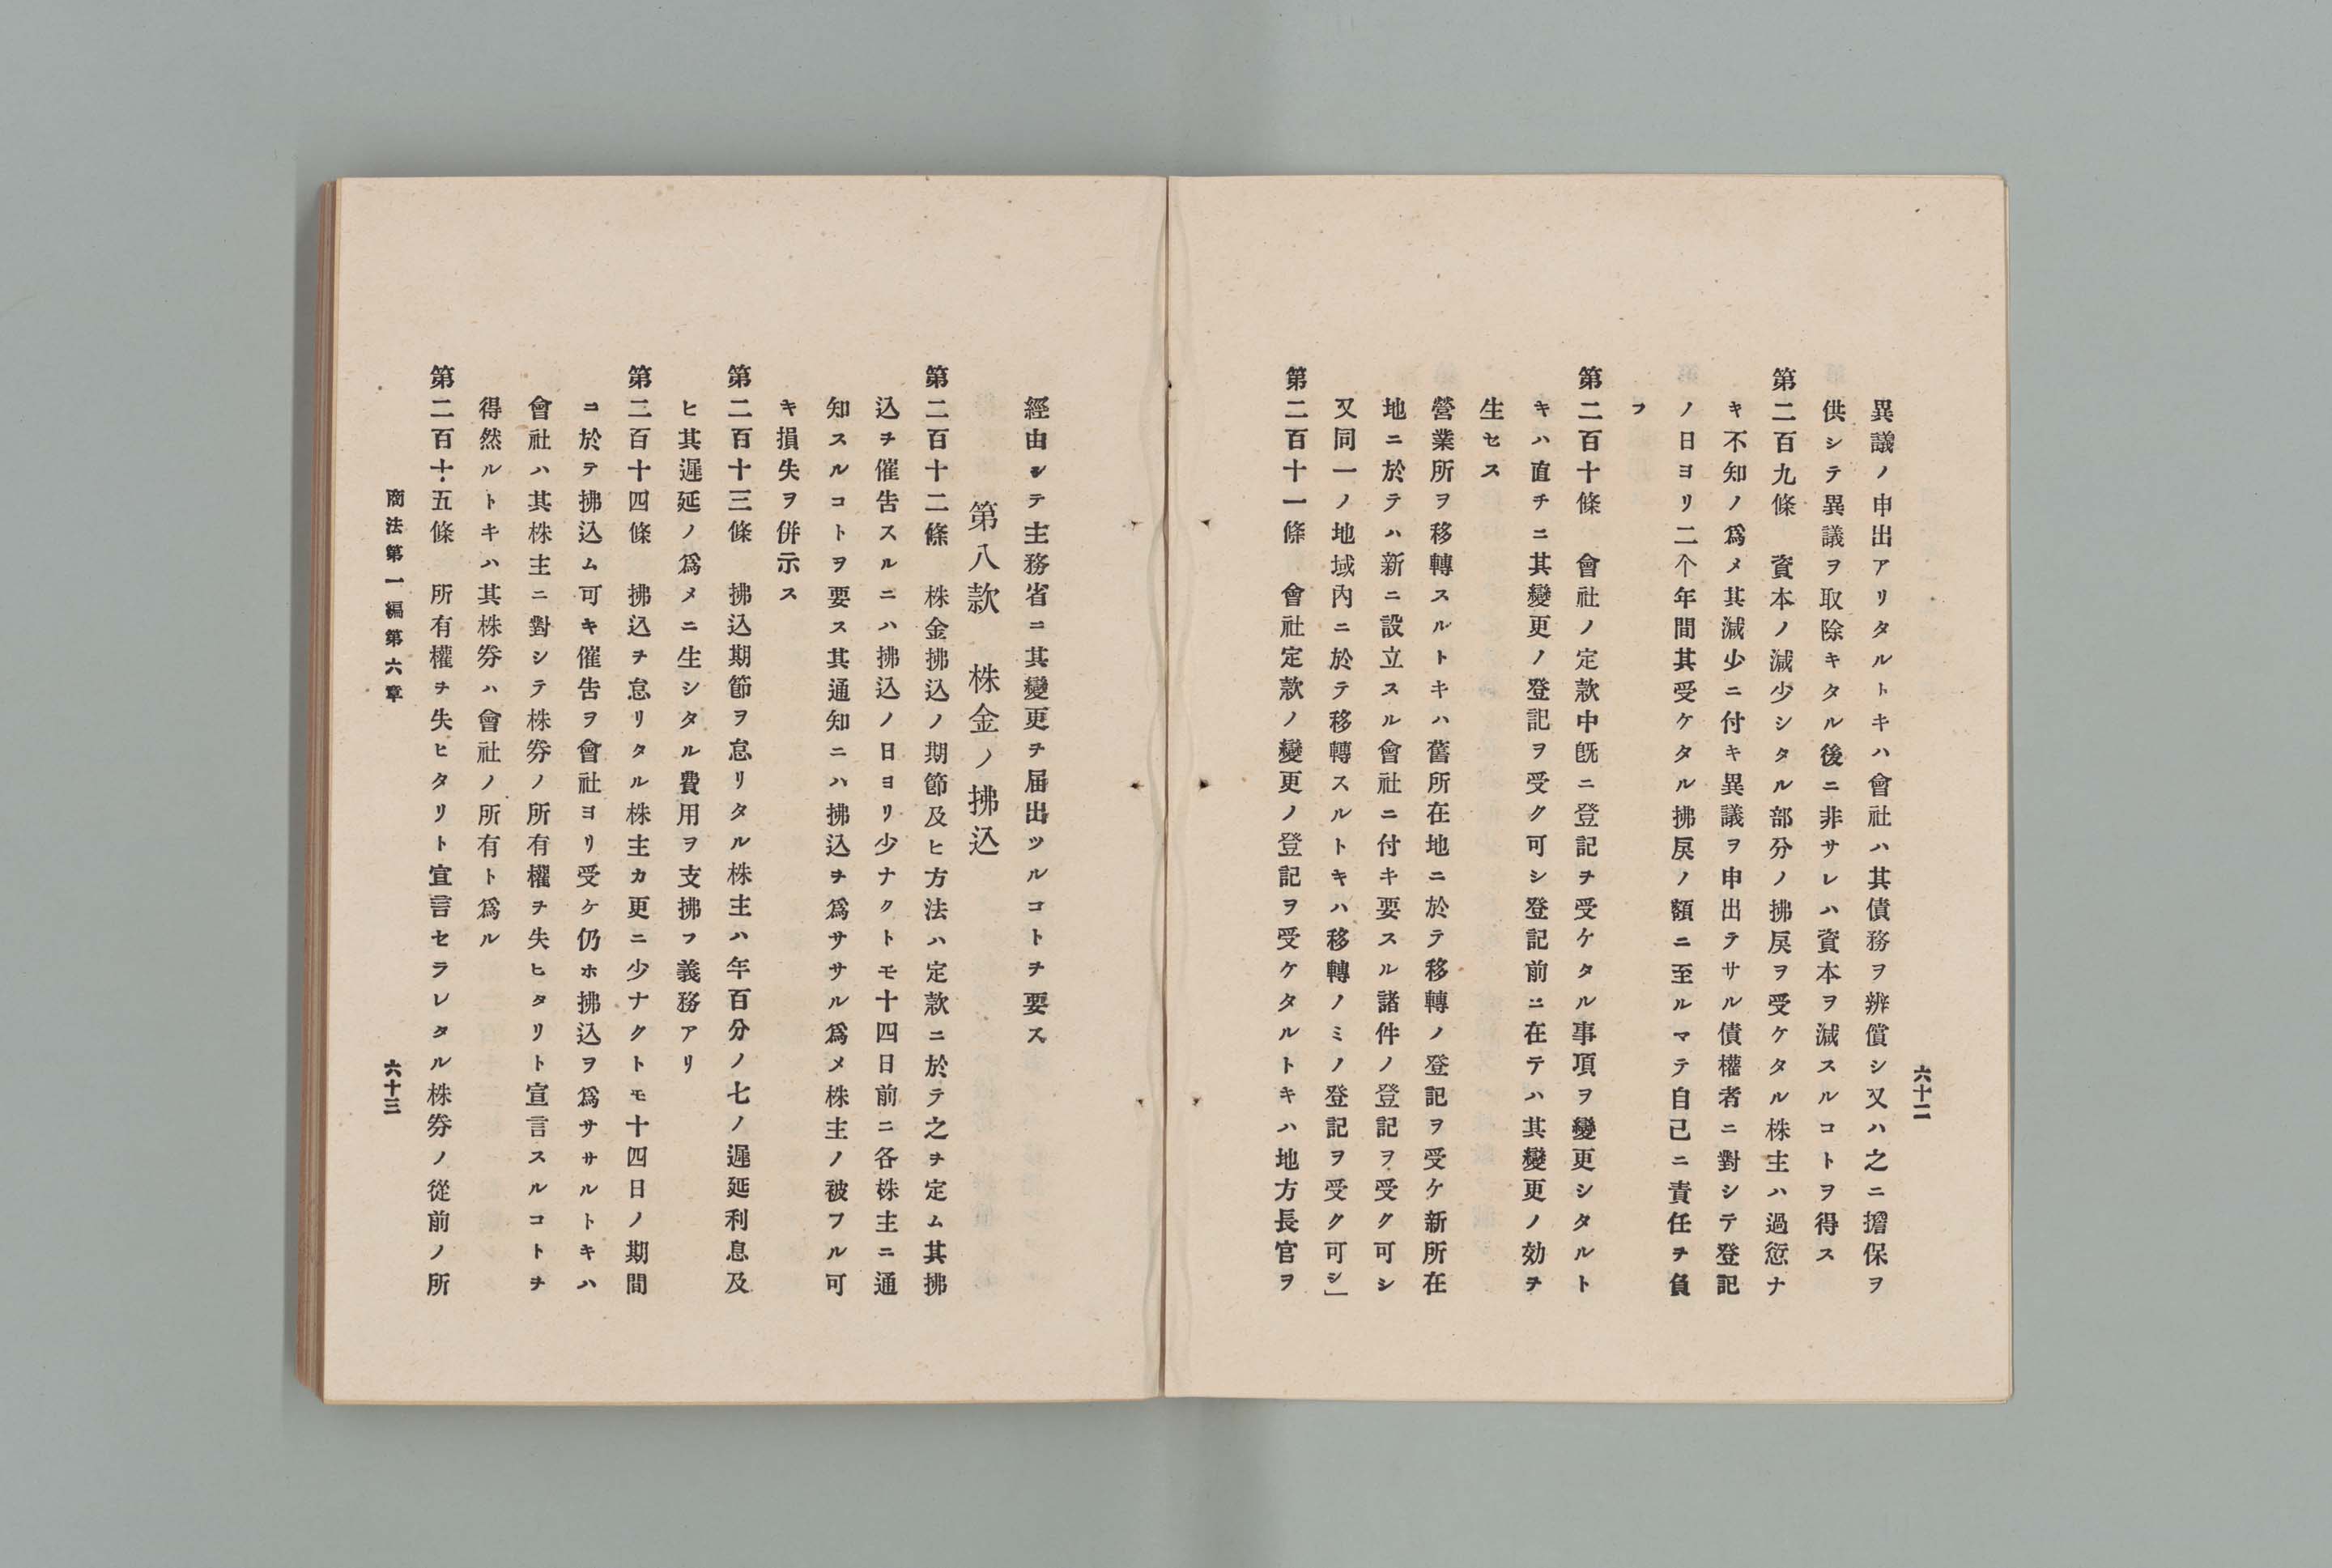 六十二
異議ノ申出アリタルトキハ會社ハ其債務ヲ辨償シ又ハ之ニ擔保ヲ
供シテ異議ヲ取除キタル後ニ非サレハ資本ヲ減スルコトヲ得ス
第二百九條　資本ノ減少シタル部分ノ拂戻ヲ受ケタル株主ハ過愆ナ
キ不知ノ爲メ其減少ニ付キ異議ヲ申出テサル債權者ニ對シテ登記
ノ日ヨリ二个年間其受ケタル拂戻ノ額ニ至ルマテ自己ニ責任ヲ負
フ
第二百十條　會社ノ定款中旣ニ登記ヲ受ケタル事項ヲ變更シタルト
キハ直チニ其變更ノ登記ヲ受ク可シ登記前ニ在テハ其變更ノ効ヲ
生セス
營業所ヲ移轉スルトキハ舊所在地ニ於テ移轉ノ登記ヲ受ケ新所在
地ニ於テハ新ニ設立スル會社ニ付キ要スル諸件ノ登記ヲ受ク可シ
又同一ノ地域內ニ於テ移轉スルトキハ移轉ノミノ登記ヲ受ク可シ」
第二百十一條　會社定款ノ變更ノ登記ヲ受ケタルトキハ地方長官ヲ
經由シテ主務省ニ其變更ヲ届出ツルコトヲ要ス
第八款　株金ノ拂込
第二百十二條　株金拂込ノ期節及ヒ方法ハ定款ニ於テ之ヲ定ム其拂
込ヲ催告スルニハ拂込ノ日ヨリ少ナクトモ十四日前ニ各株主ニ通
知スルコトヲ要ス其通知ニハ拂込ヲ爲ササル爲メ株主ノ被フル可
キ損失ヲ併示ス
第二百十三條　拂込期節ヲ怠リタル株主ハ年百分ノ七ノ遲延利息及
ヒ其遲延ノ爲メニ生シタル費用ヲ支拂フ義務アリ
第二百十四條　拂込ヲ怠リタル株主カ更ニ少ナクトモ十四日ノ期間
ニ於テ拂込ム可キ催告ヲ會社ヨリ受ケ仍ホ拂込ヲ爲ササルトキハ
會社ハ其株主ニ對シテ株券ノ所有權ヲ失ヒタリト宣言スルコトヲ
得然ルトキハ其株券ハ會社ノ所有ト爲ル
第二百十五條　所有權ヲ失ヒタリト宣言セラレタル株券ノ從前ノ所
商法第一編第六章
六十三